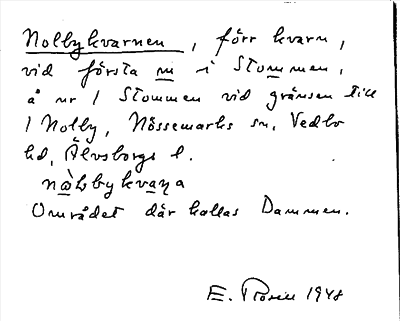 Nolbykvarnen, förr kvarn,
vid första m i Stommen,
å nr 1 Stommen vid gränsen till
1 Nolby, Nössemarks sn, Vedbo
hd, Älvsborgs l.
Området där kallas Dammen.
E. Rosén 1948